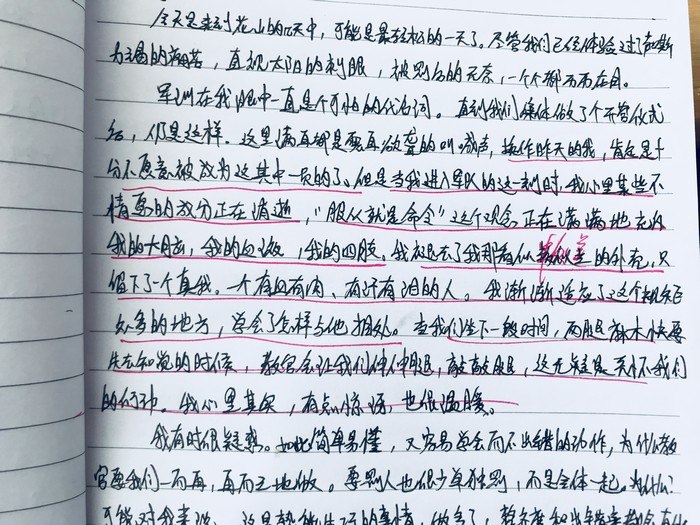 今天是来到花山的6天中，可能是最轻松的一天了。尽管我们已经体验过了
为揭的痛苦，直视太阳的刺眼，被罚的无奈，一个个都历历在目。
军训在我眼中一直是个可怕的代名词。直到我们集体做了个开营仪式
后，仍是这样。这里满耳都是震耳欲聋的叫喊声，换作昨天的我，肯定是十
分不愿意被成为这其中一员的了。但是当我进入军队的这一刻时，我心里某些不
情愿的成分正在消逝，“服从就是命令”这个观念正在满满地充斥
我的大脑，我的血液，我的四肢。我褪去了我那看似的外壳，只
留下了一个真我。一个有血有肉、有汗有泪的人。我渐渐适应了这个规矩
众多的地方，学会了怎样与他相处。当我们坐下一段时间，而腿麻木快要
失去知觉的时候，教官会让我们伸伸腿，敲敲腿，这无疑是关怀我们
的行动。我心里其实，有点惊讶，也很温暖。
我有时很疑惑。如此简单易懂，又容易学会而不出错的动作，为什么教
官要我们一而再，再而三地做。要罚人也很少单独罚，而是全体一起。为什么？
可能对我来说，这是